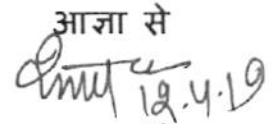 आज्ञा से
12.4.19